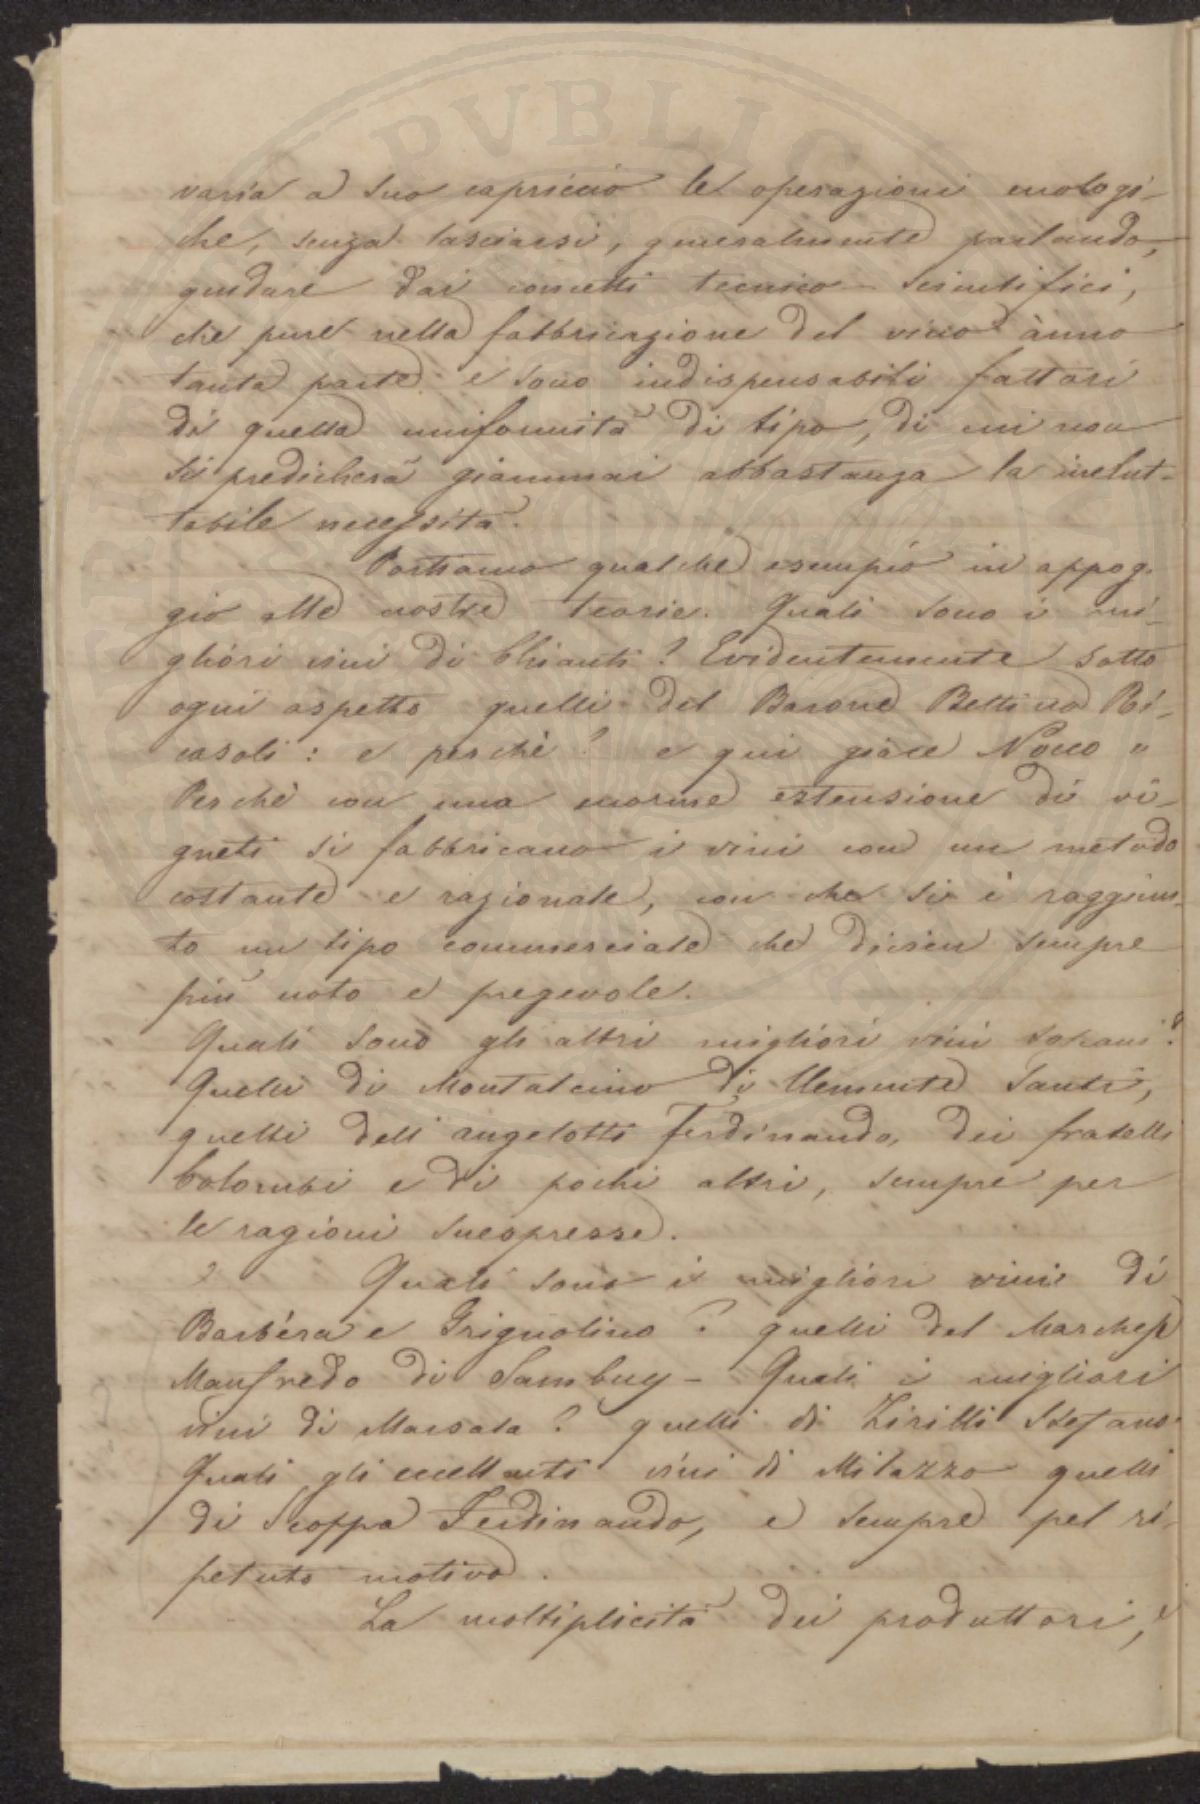 varia a suo capriccio le operazioni enologi-
che, senza lasciarsi, generalmente parlando,
guidare dai concetti tecnico-scientifici,
che pure nella fabbricazione del vino ànno
tanta parte e sono indispensabili fattori
di quella uniformità di tipo, di cui non
si predicherà giammai abbastanza la inelut-
tabile necessità.
Portiamo qualche esempio in appog-
gio alle nostre teorie. Quali sono i mi-
gliori vini di Chianti? Evidentemente sotto
ogni aspetto quelli del Barone Bettino Ri-
casoli: e perchè? e qui giace Nocco "
Perchè con una enorme estensione di vi-
gneti si fabbricano i vini con un metodo
costante e razionale, con che si è raggiun-
to un tipo commerciale che divien sempre
più noto e pregevole.
Quali sono gli altri migliori vini toscani?
Quelli di Montalcino di Clemente Santi,
quelli dell'angelotti Ferdinando, dei fratelli
Colombi e di pochi altri, sempre per
le ragioni suespresse.
Quali sono i migliori vini di
Barbéra e Grignolino? quelli del Marchese
Manfredo di Sambuy - Quali i migliori
vini di Marsala? quelli di Zirilli Stefano
Quali gli eccellenti vini di Milazzo quelli
di Scoppa Ferdinando, e sempre pel ri-
petuto motivo.
La moltiplicità dei produttori, e